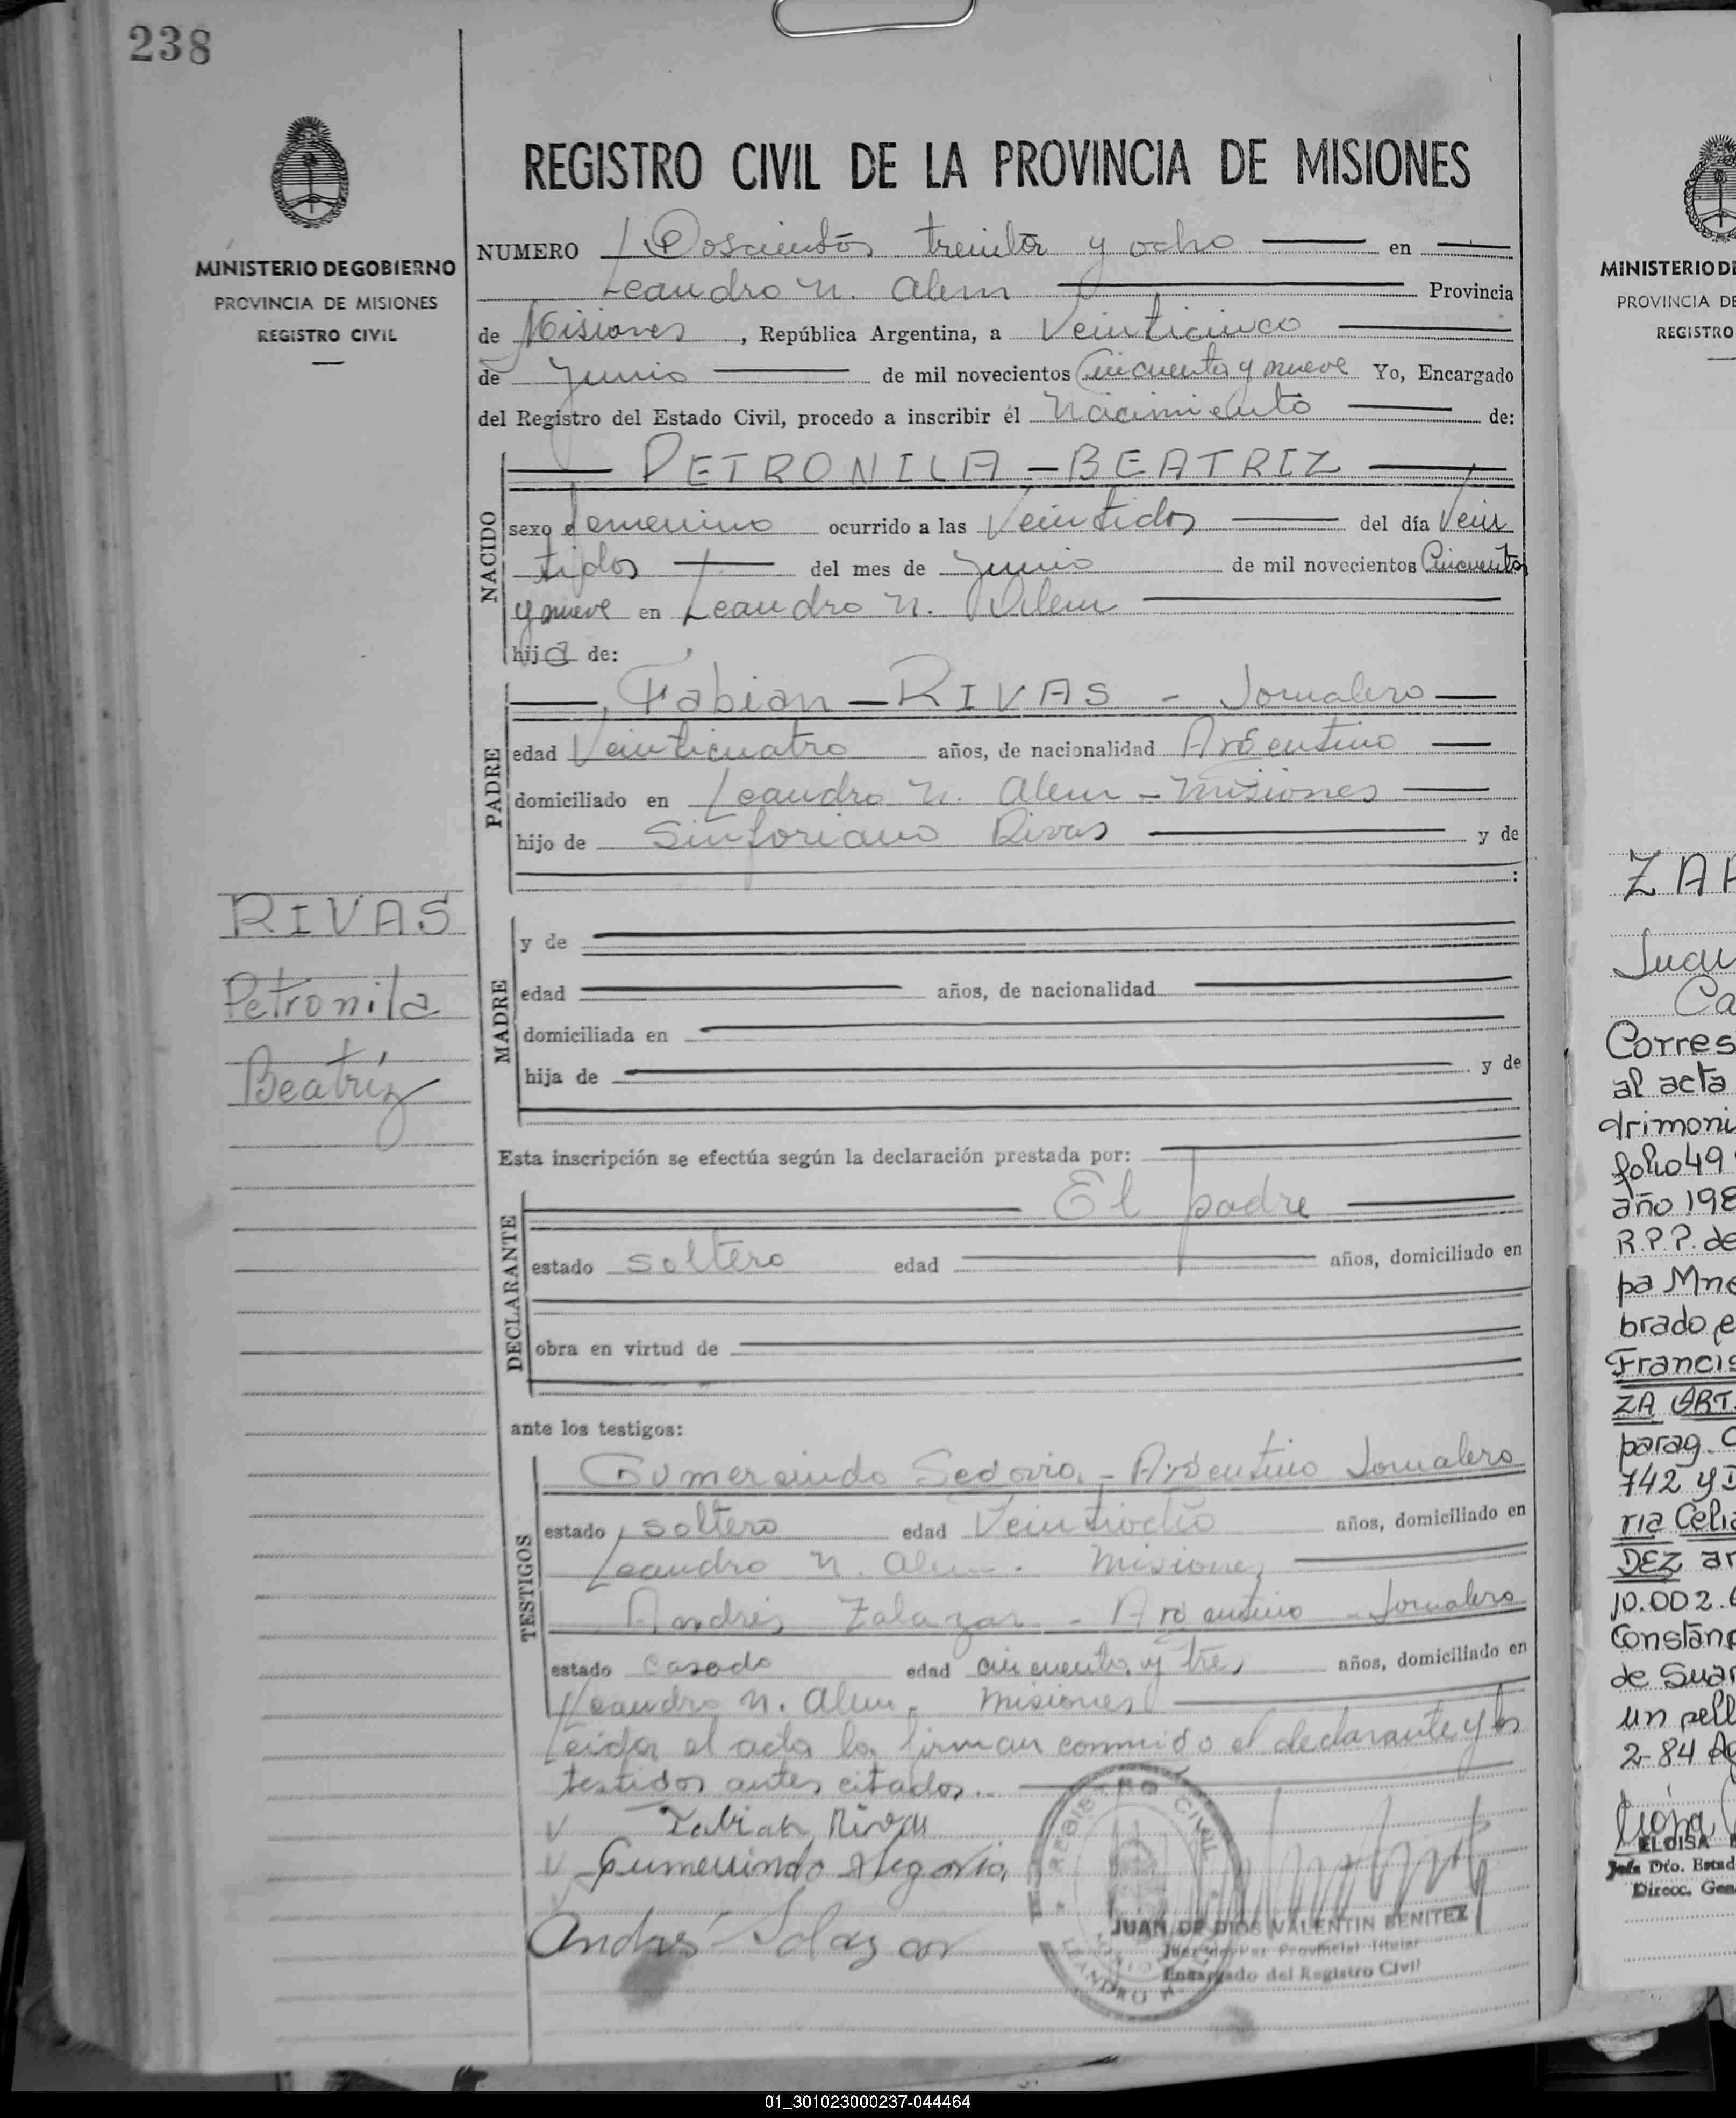 238
MINISTERIO DE GOBIERNO
PROVINCIA DE MISIONES
REGISTRO CIVIL
RIVAS
Petronila
Beatríz
REGISTRO CIVIL DE LA PROVINCIA DE MISIONES
NUMERO Doscientos treinta y ocho en
Leandro N. Alem Provincia
de Misiones, República Argentina, a Veinticinco
de Junio de mil novecientos Cincuenta y nueve Yo, Encargado
del Registro del Estado Civil, procedo a inscribir él Nacimiento de:
NACIDO
PETRONILA - BEATRIZ
sexo femenino ocurrido a las Veintidos del día Vein
tidos del mes de Junio de mil novecientos Cincuenta
y nueve en Leandro N. Alem
hija de:
PADRE
Fabian - RIVAS - Jornalero
edad Veinticuatro años, de nacionalidad Argentino
domiciliado en Leandro N. Alem - Misiones
hijo de Sinforiano Rivas y de
:
MADRE
y de
edad años, de nacionalidad
domiciliada en
hija de y de
Esta inscripción se efectúa según la declaración prestada por:
DECLARANTE
El padre
estado soltero edad años, domiciliado en
obra en virtud de
ante los testigos:
TESTIGOS
Gumersindo Segovia - Argentino Jornalero
estado soltero edad Veintiocho años, domiciliado en
Leandro N. Alem - Misiones
Andrés Zalazar - Argentino - Jornalero
estado casado edad cincuenta y tres años, domiciliado en
Leandro N. Alem - Misiones
Leida el acta la firman conmigo el declarante y los
testigos antes citados.
Fabian Rivas
Gumersindo Segovia
Andrés Salazar
REGISTRO CIVIL
LEANDRO N.
JUAN DE DIOS VALENTIN BENITEZ
Juez de Paz Provincial Titular
Encargado del Registro Civil
MINISTERIO DE
PROVINCIA DE
REGISTRO
ZAR
Juan
Ca
Corres
al acta
trimoni
folio 49
año 198
R.P.P. de
pa Mne
brado e
Francis
ZA ORT
parag. C
742 y D
ria Celia
DEZ ar
10.002.6
Constan
de Suar
un pell
2-84
ELOISA
Jefa Dto. Estad
Direcc. Gen
01_301023000237-044464